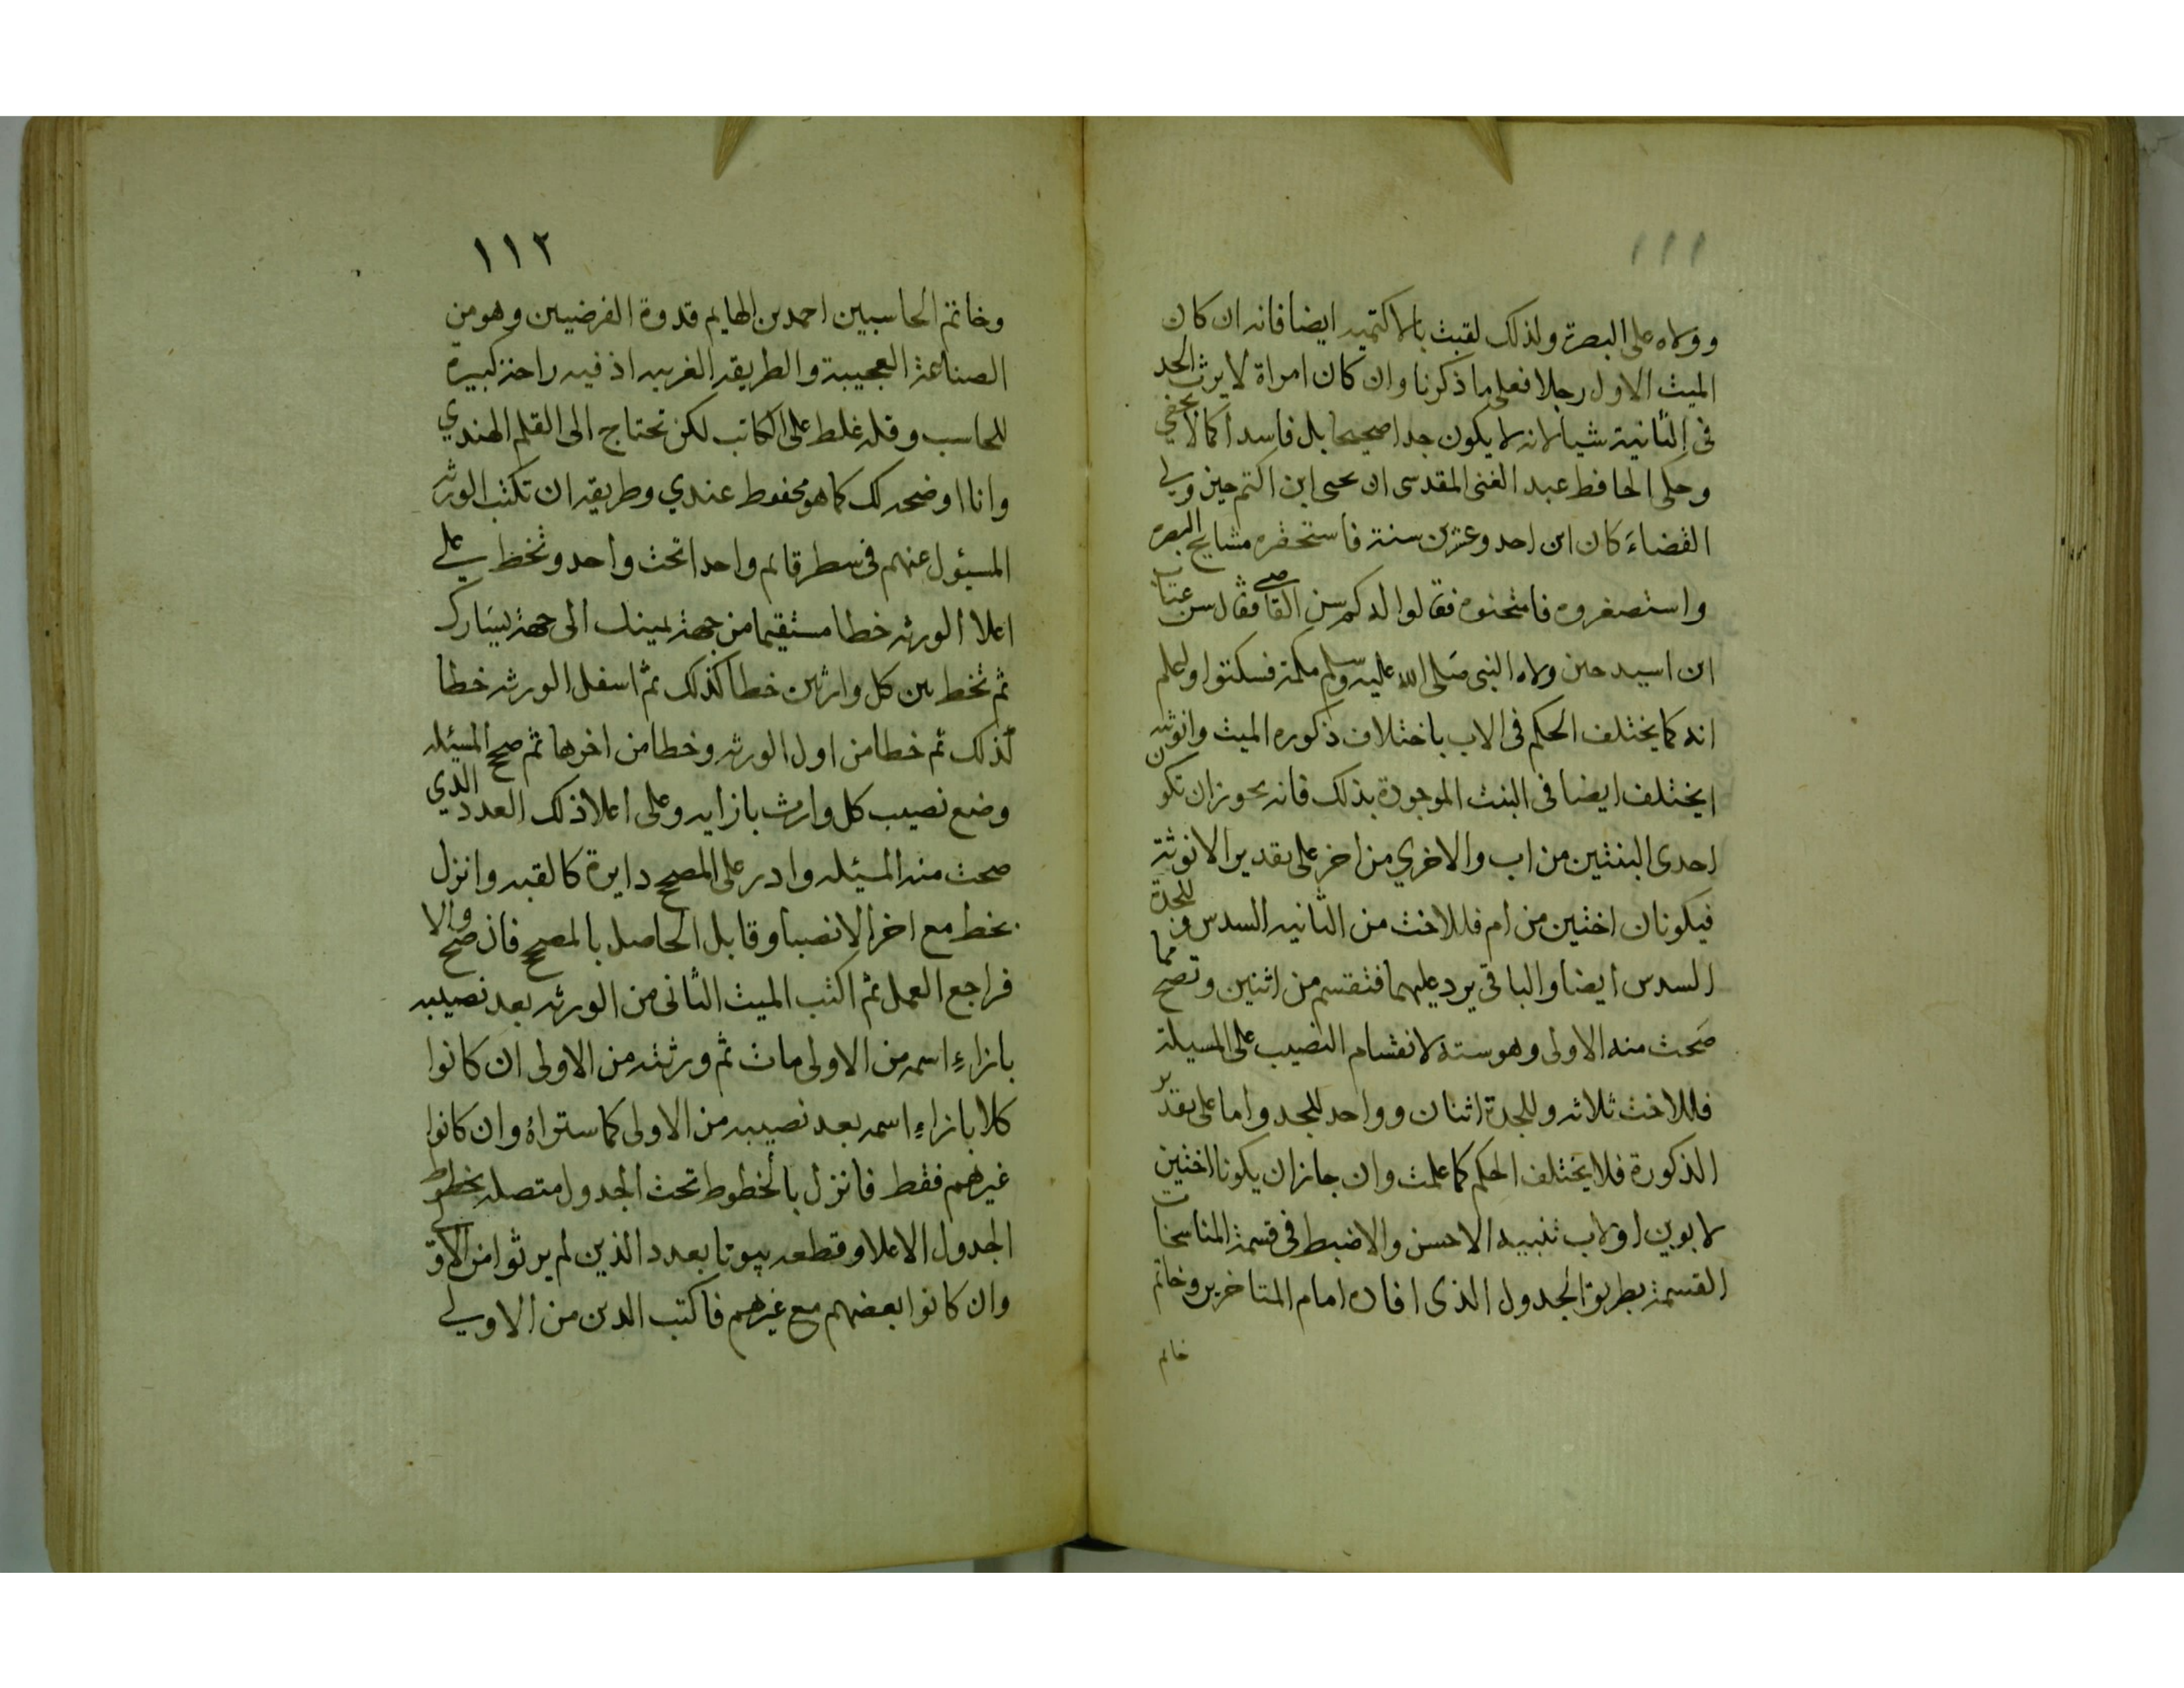 ١١١
وولاه على البصرة ولذلك لقبت بالاكتميه ايضا فانه ان كان
الميت الاول رجلا فعلى ما ذكرنا وان كان امراة لا يرث الجد
فى الثانية شيأ لانه لا يكون جدا صحيحا بل فاسدا كما لا يخفي
وحكى الحافظ عبد الغنى المقدسى ان يحيى ابن اكتم حين ولي
القضاء كان ابن احد وعشرين سنة فاستحقره مشايخ البصره
واستصغروه فامتحنوه فقالوا له كم سن القاضي فقال سن عتاب
ابن اسيد حين ولاه النبى صلى الله عليه وسلم مكة فسكتوا واعلم
انه كما يختلف الحكم فى الاب باختلاف ذكوره الميت وانوثته
يختلف ايضا فى البنت الموجودة بذلك فانه يجوز ان تكون
احدى البنتين من اب والاخري من اخر على تقدير الانوثة
فيكونان اختين من ام فللاخت من الثانيه السدس وللجدة
السدس ايضا والباقى يرد عليهما فتقسم من اثنين وتصح مما
صحت منه الاولى وهو ستة لانقسام النصيب على المسيلة
فللاخت ثلاثه وللجدة اثنان وواحد للجد واما على تقدير
الذكورة فلا يختلف الحكم كما علمت وان جاز ان يكونا اختين
لابوين او لاب تنبيه الاحسن والاضبط فى قسمة المناسخات
القسمة بطريق الجدول الذى افاده امام المتاخرين وخاتم
خاتم
١١٢
وخاتم الحاسبين احمد بن الهايم قدوة الفرضيين وهو من
الصناعة العجيبة والطريقه الغريبه اذ فيه راحة كبيرة
للحاسب وقله غلط على الكاتب لكن تحتاج الى القلم الهندي
وانا اوضحه لك كما هو محفوظ عندي وطريقه ان تكتب الورثه
المسئول عنهم فى سطر قائم واحدا تحت واحد وتخط على
اعلا الورثه خطا مستقيما من جهة يمينك الى جهة يسارك
ثم تخط بين كل وارثين خطا كذلك ثم اسفل الورثه خطا
كذلك ثم خطا من اول الورثه وخطا من اخرها ثم صحح المسئله
وضع نصيب كل وارث بازايه وعلى اعلا ذلك العدد الذي
صحت منه المسئله وادر على المصحح دايرة كالقبه وانزل
بخط مع اخر الانصبا وقابل الحاصل بالمصحح فان صح والا
فراجع العمل ثم اكتب الميت الثانى من الورثه بعد نصيبه
بازاء اسمه من الاولى مات ثم ورثته من الاولى ان كانوا
كلا بازاء اسمه بعد نصيبه من الاولى كما ستراه وان كانوا
غيرهم فقط فانزل بالخطوط تحت الجدول متصله بخطوط
الجدول الاعلا وقطعه بيوتا بعدد الذين لم يرثوا من الاولى
وان كانوا بعضهم مع غيرهم فاكتب الذين من الاولي